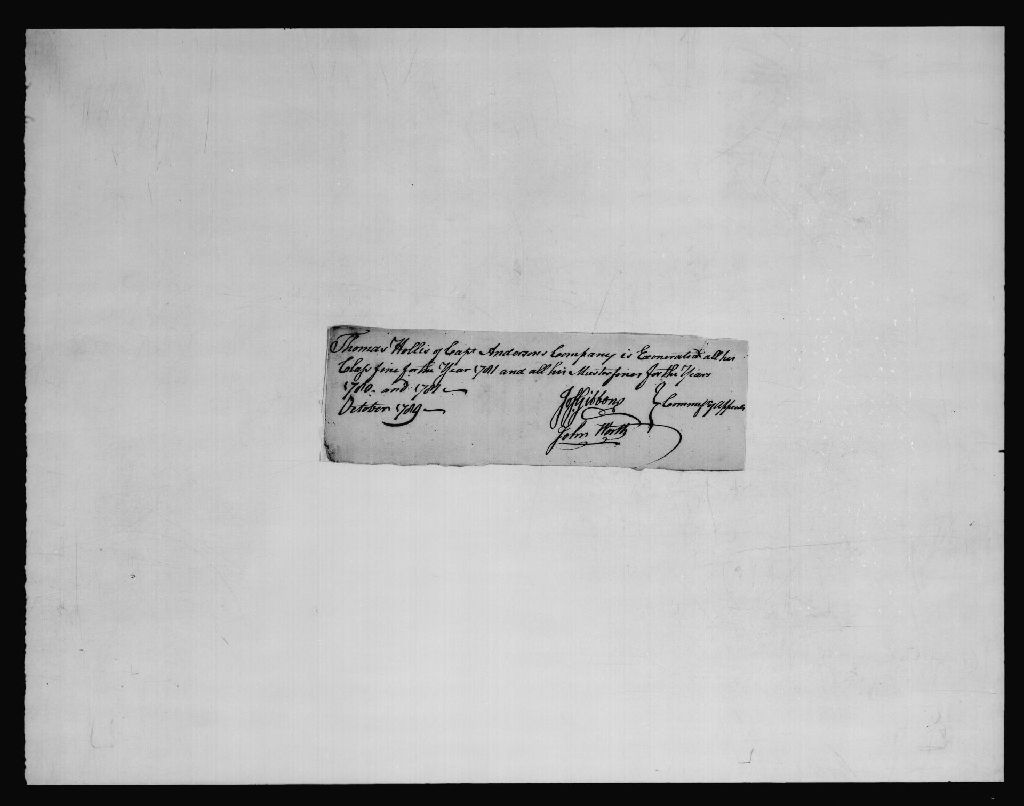 Thomas Hollis of Capt Andersons Company is Exonerated all his
Class fine for the Year 1781 and all his Muster fines for the Years
1780 and 1781
October 1789
Jos Gibbons } Commrs of Appeals
John Worth